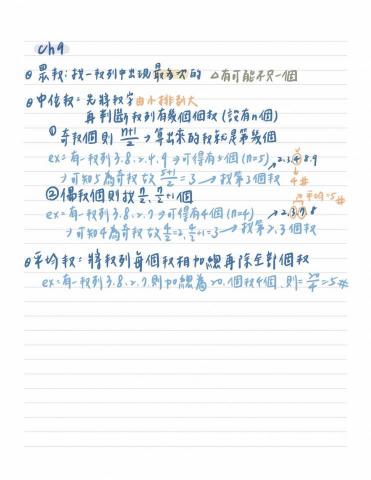 ch4
θ 眾數:找一數列中出現最多次的 △有可能不只一個
θ 中位數:先將數字由小排到大
再判斷數列有幾個個數(設有n個)
① 奇數個則 n+1/2 → 算出來的數就是第幾個
ex=有一數列3.8.2.4.9 → 可得有5個(n=5) → 2.3.4.8.9
→ 可知5為奇數 故 5+1/2 = 3 → 找第3個數 4#
② 偶數個則找 n/2、n/2+1個 平均=5#
ex=有一數列3.8.2.7 → 可得有4個(n=4) → 2.3.7.8
→ 可知4為奇數 故 4/2=2, 4/2+1=3 → 找第2,3個數
θ 平均數:將數列每個數相加總再除全部個數
ex=有一數列3.8.2.7.則加總為20.個數4個.則=20/4=5#